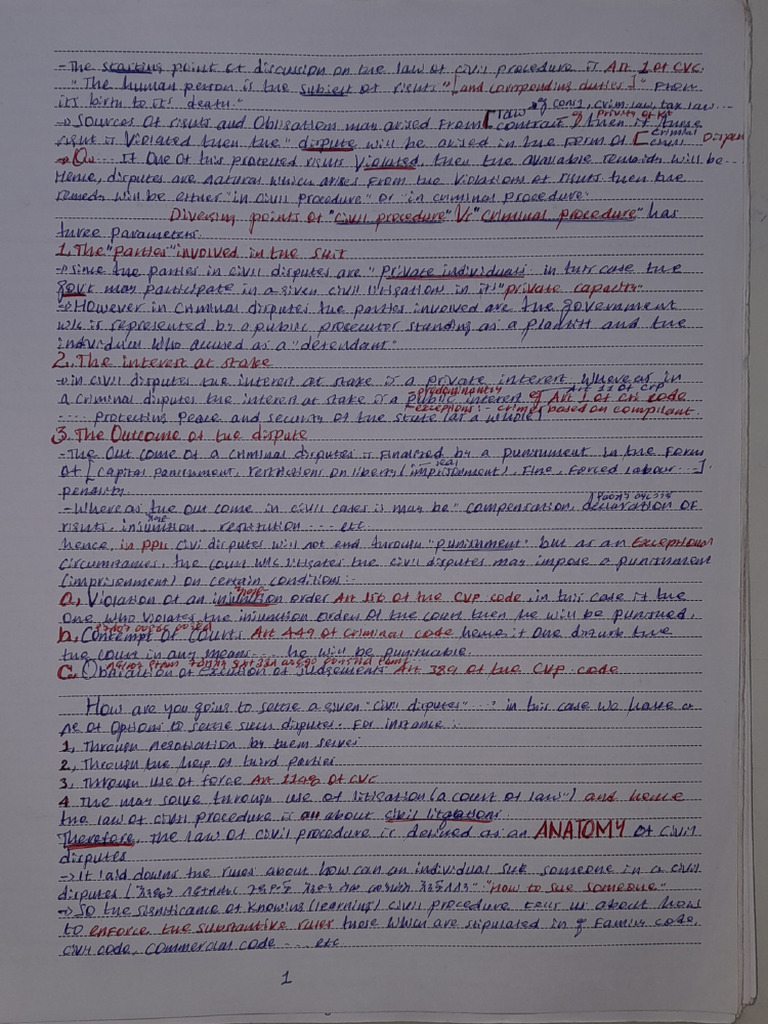 - The starting point of discussion on the law of civil procedure is Art 1 of CVC.
"The human person is the subject of rights" [and corresponding duties] " from
its birth to it's death."
→ Sources of rights and Obligation may arised From [Law → of cons, crim. law, tax law...
contract → Privity of Kt
then if these
right is Violated then the "dispute will be arised in the Form of [Criminal
civil
Dispute
→ Q.. If One of this protected rights Violated, then the available remedy will be...
Hence, disputes are natural which arises From the Violations of rights then the
remedy will be either "in civil procedure" or "in criminal procedure.
Diverging points of "civil procedure" Vs "criminal procedure" has
three parameters.
1. The "parties" involved in the suit
→ Since the parties in civil disputes are "Private individuals in this case the
govt may participate in a given civil litigation in it's "private capacity"
→ However in criminal disputes the parties involved are the government
wh is represented by a public prosecutor standing as a plaintiff and the
individual who accused as a "defendant"
2. The interest at stake
→ in civil disputes the interest at stake is a private interest whereas in
predominantly
a criminal disputes the interest at stake is a public interest of Art 1 of cri code
exceptions :- crimes based on complaint
.... Protecting Peace and security of the state (as a whole)
3. The Outcome of the dispute
- The Out come of a criminal disputes is Finalized by a punishment in the Form
of [capital punishment, restrictions on liberty (imprisonment), Fine, Forced labour ...].
penalty.
- Whereas the out come in civil cases is may be "compensation, declaration of
rights, injunction, restitution .... etc
hence, in ppu civil disputes will not end through "punishment" but as an Exceptional
circumstances, the court wh litigates the civil disputes may impose a punishment
(imprisonment) on certain condition:-
a, Violation of an injunction order Art 156 of the CVP code, in this case if the
One who violates the injunction orders of the court then he will be punished.
b, Contempt of Courts Art 449 of Criminal code hence if one disturb the
the court in any means... he will be punishable.
C. Obstruction of Execution of Judgements Art 389 of the CVP code
How are you going to settle a given "civil disputes" .... ? in this case we have a
no of Options to settle such disputes. For instance :
1, Through negotiation by them selves
2, Through the help of third parties
3. Through use of force Art 1148 of CVC
4 The may solve through use of litigation (a court of law") and hence
the law of civil procedure is all about civil litigations.
Therefore, the law of civil procedure is defined as an ANATOMY of civil
disputes
→ it laid downs the rules about how can an individual sue someone in a civil
disputes "How to sue someone"
→ So the significance of knowing (learning) civil procedure tell us about how
to enforce the substantive rules those which are stipulated in Family code,
civil code, commercial code .... etc
1